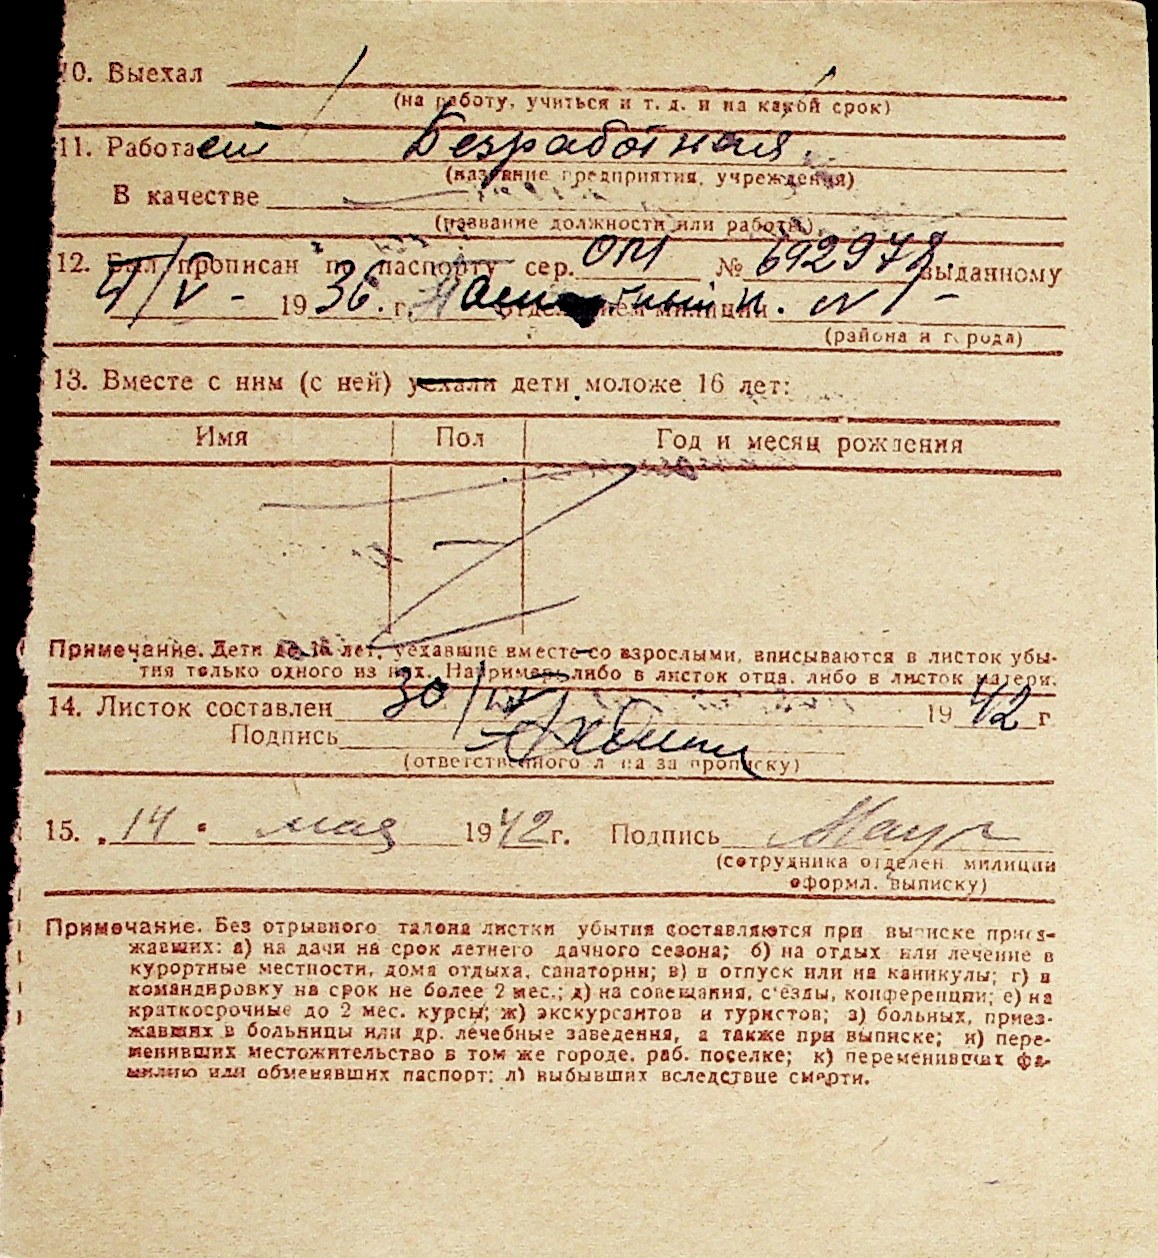 10. Выехал
(на работу, учиться и т. д. и на какой срок)
11. Работает Безработная.
(название предприятия, учреждения)
В качестве
(название должности или работы)
12. Был прописан по паспорту сер. ОМ № 692978 выданному
4/V - 1936. г. Паспортный п. № 1 -
отделением милиции
(района и города)
13. Вместе с ним (с ней) уехали дети моложе 16 лет:
Имя Пол Год и месяц рождения
Примечание. Дети до 16 лет, уехавшие вместе со взрослыми, вписываются в листок убы-
тия только одного из них. Например: либо в листок отца, либо в листок матери.
14. Листок составлен 30/IV 1942 г
Подпись
(ответственного лица за прописку)
15. „14" мая 1942 г. Подпись
(сотрудника отделен. милиции
оформл. выписку)
Примечание. Без отрывного талона листки убытия составляются при выписке приез-
жавших: а) на дачи на срок летнего дачного сезона; б) на отдых или лечение в
курортные местности, дома отдыха, санатории; в) в отпуск или на каникулы; г) в
командировку на срок не более 2 мес.; д) на совещания, с'езды, конференции; е) на
краткосрочные до 2 мес. курсы; ж) экскурсантов и туристов; з) больных, приез-
жавших в больницы или др. лечебные заведения, а также при выписке; и) пере-
менивших местожительство в том же городе, раб. поселке; к) переменивших фа-
милию или обменявших паспорт; л) выбывших вследствие смерти.